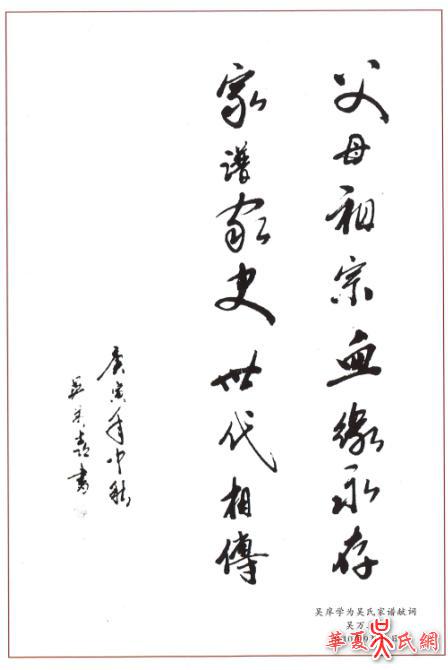 父母祖宗血缘永存
家谱家史世代相傳
庚寅年中秋
吴庠学为吴氏家谱献词
吴万
華夏吴氏網